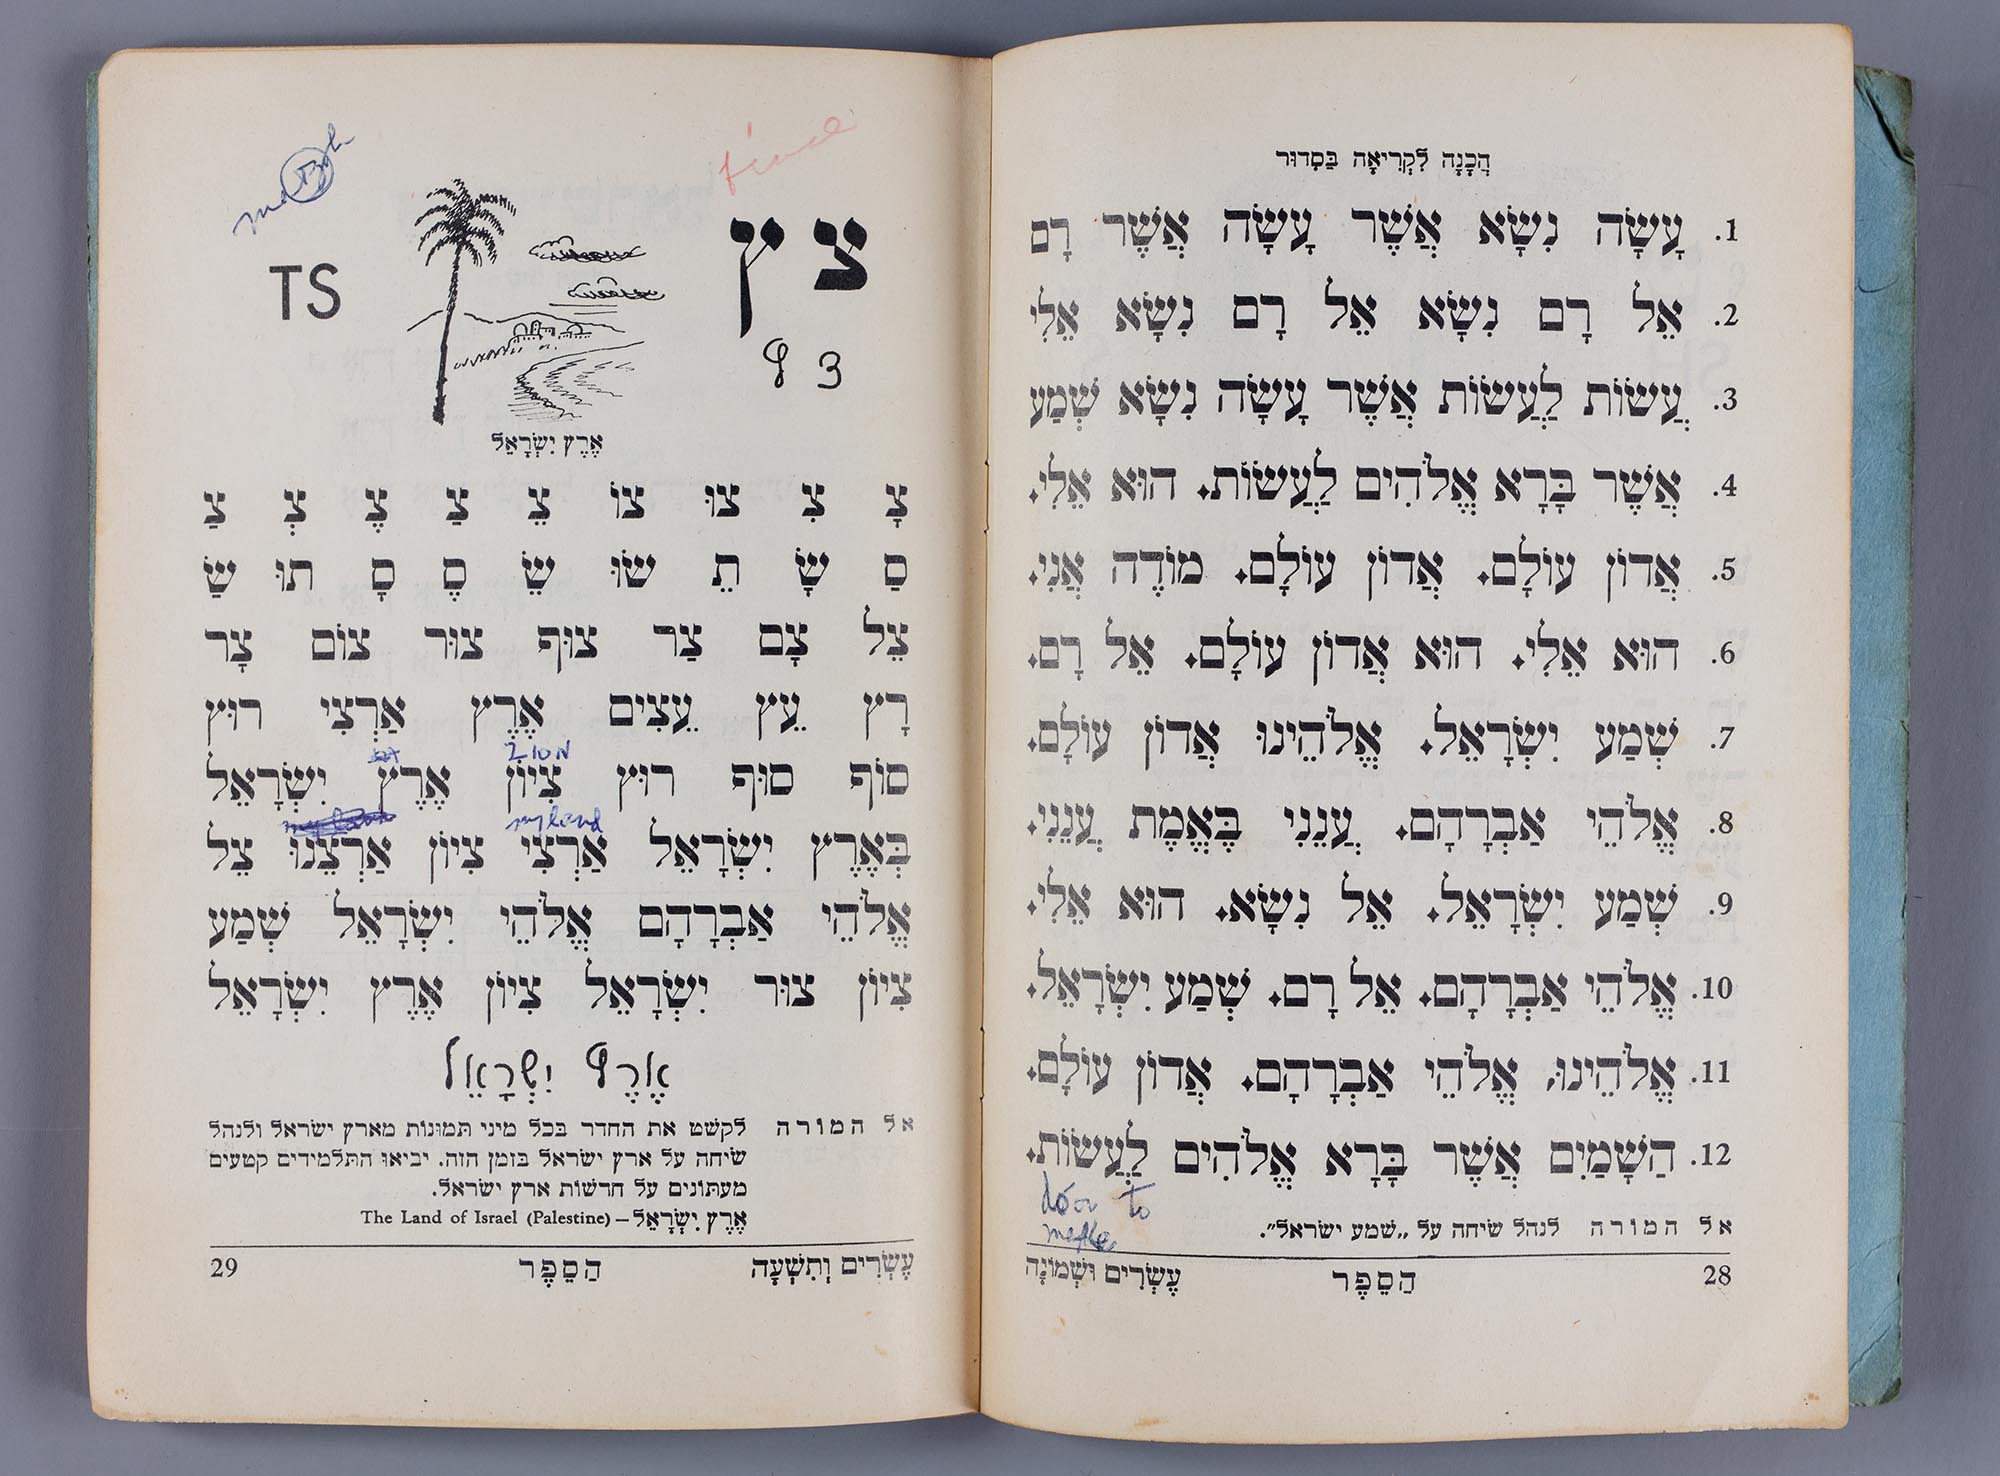 הֲכָנָה לִקְרִיאָה בַּסִדוּר
1. עָשָׂה נִשָׂא אֲשֶׁר עָשָׂה אֲשֶׁר רָם
2. אֵל רָם נִשָׂא אֵל רָם נִשָׂא אֵלִי
3. עֲשׂוֹת לַעֲשׂוֹת אֲשֶׁר עָשָׂה נִשָׂא שְׁמַע
4. אֲשֶׁר בָּרָא אֱלֹהִים לַעֲשׂוֹת. הוּא אֵלִי.
5. אֲדוֹן עוֹלָם. אֲדוֹן עוֹלָם. מוֹדֶה אֲנִי.
6. הוּא אֵלִי. הוּא אֲדוֹן עוֹלָם. אֵל רָם.
7. שְׁמַע יִשְׂרָאֵל. אֱלֹהֵינוּ אֲדוֹן עוֹלָם.
8. אֱלֹהֵי אַבְרָהָם. עֲנֵנִי בֶּאֱמֶת עֲנֵנִי.
9. שְׁמַע יִשְׂרָאֵל. אֵל נִשָׂא. הוּא אֵלִי.
10. אֱלֹהֵי אַבְרָהָם. אֵל רָם. שְׁמַע יִשְׂרָאֵל.
11. אֱלֹהֵינוּ, אֱלֹהֵי אַבְרָהָם. אֲדוֹן עוֹלָם.
12. הַשָׁמַיִם אֲשֶׁר בָּרָא אֱלֹהִים לַעֲשׂוֹת.
to
אל המורה לנהל שיחה על „שמע ישראל”.
28 הַסֵפֶר עֶשְׂרִים וּשְׁמוֹנָה
צ ץ
TS
אֶרֶץ יִשְׂרָאֵל
צָ צִ צוּ צוֹ צֵ צַ צֶ צְ צַ
סַ שָׂ תֵ שׂוּ שֵׂ סֶ סָ תוּ שַׂ
צֵל צָם צַר צוּף צוּר צוֹם צָר
רָץ עֵץ עֵצִים אֶרֶץ אַרְצִי רוּץ
ZION
סוֹף סוּף רוּץ צִיוֹן אֶרֶץ יִשְׂרָאֵל
my land
בְּאֶרֶץ יִשְׂרָאֵל אַרְצִי צִיוֹן אַרְצֵנוּ צֵל
אֱלֹהֵי אַבְרָהָם אֱלֹהֵי יִשְׂרָאֵל שְׁמַע
צִיוֹן צוּר יִשְׂרָאֵל צִיוֹן אֶרֶץ יִשְׂרָאֵל
אֶרֶץ יִשְׂרָאֵל
אל המורה לקשט את החדר בכל מיני תמונות מארץ ישראל ולנהל
שיחה על ארץ ישראל בזמן הזה. יביאו התלמידים קטעים
מעתונים על חדשות ארץ ישראל.
אֶרֶץ יִשְׂרָאֵל – The Land of Israel (Palestine)
עֶשְׂרִים וְתִשְׁעָה הַסֵפֶר 29